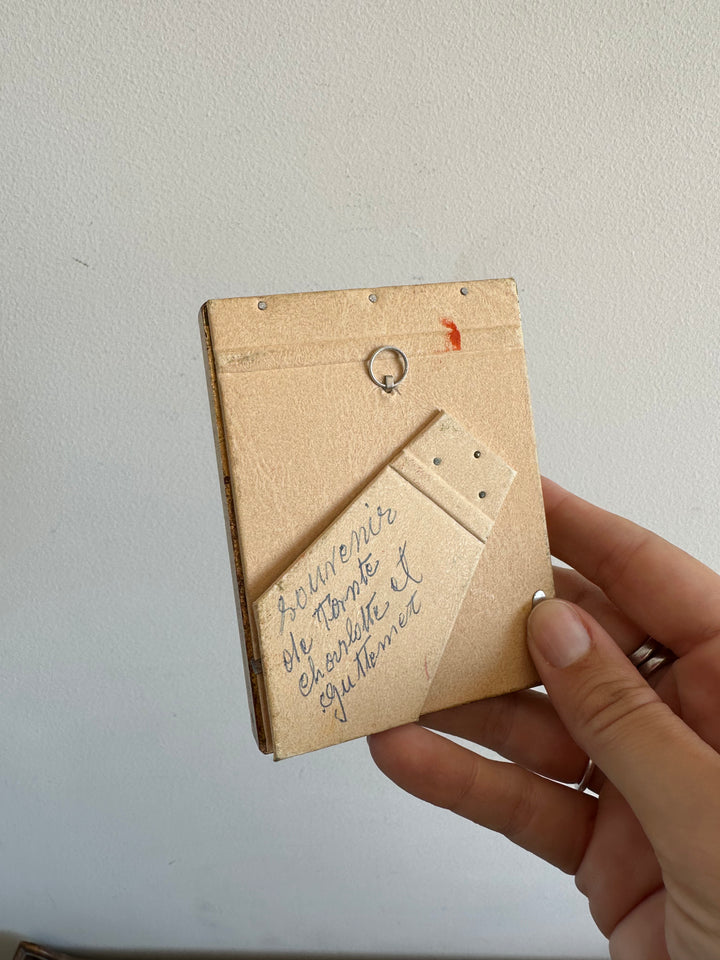 Souvenir
de Tante
charlotte et
guttemer